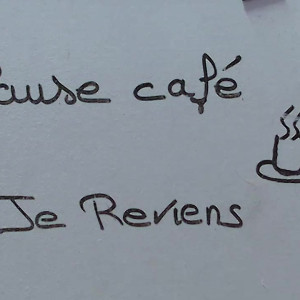 Pause café
Je Reviens